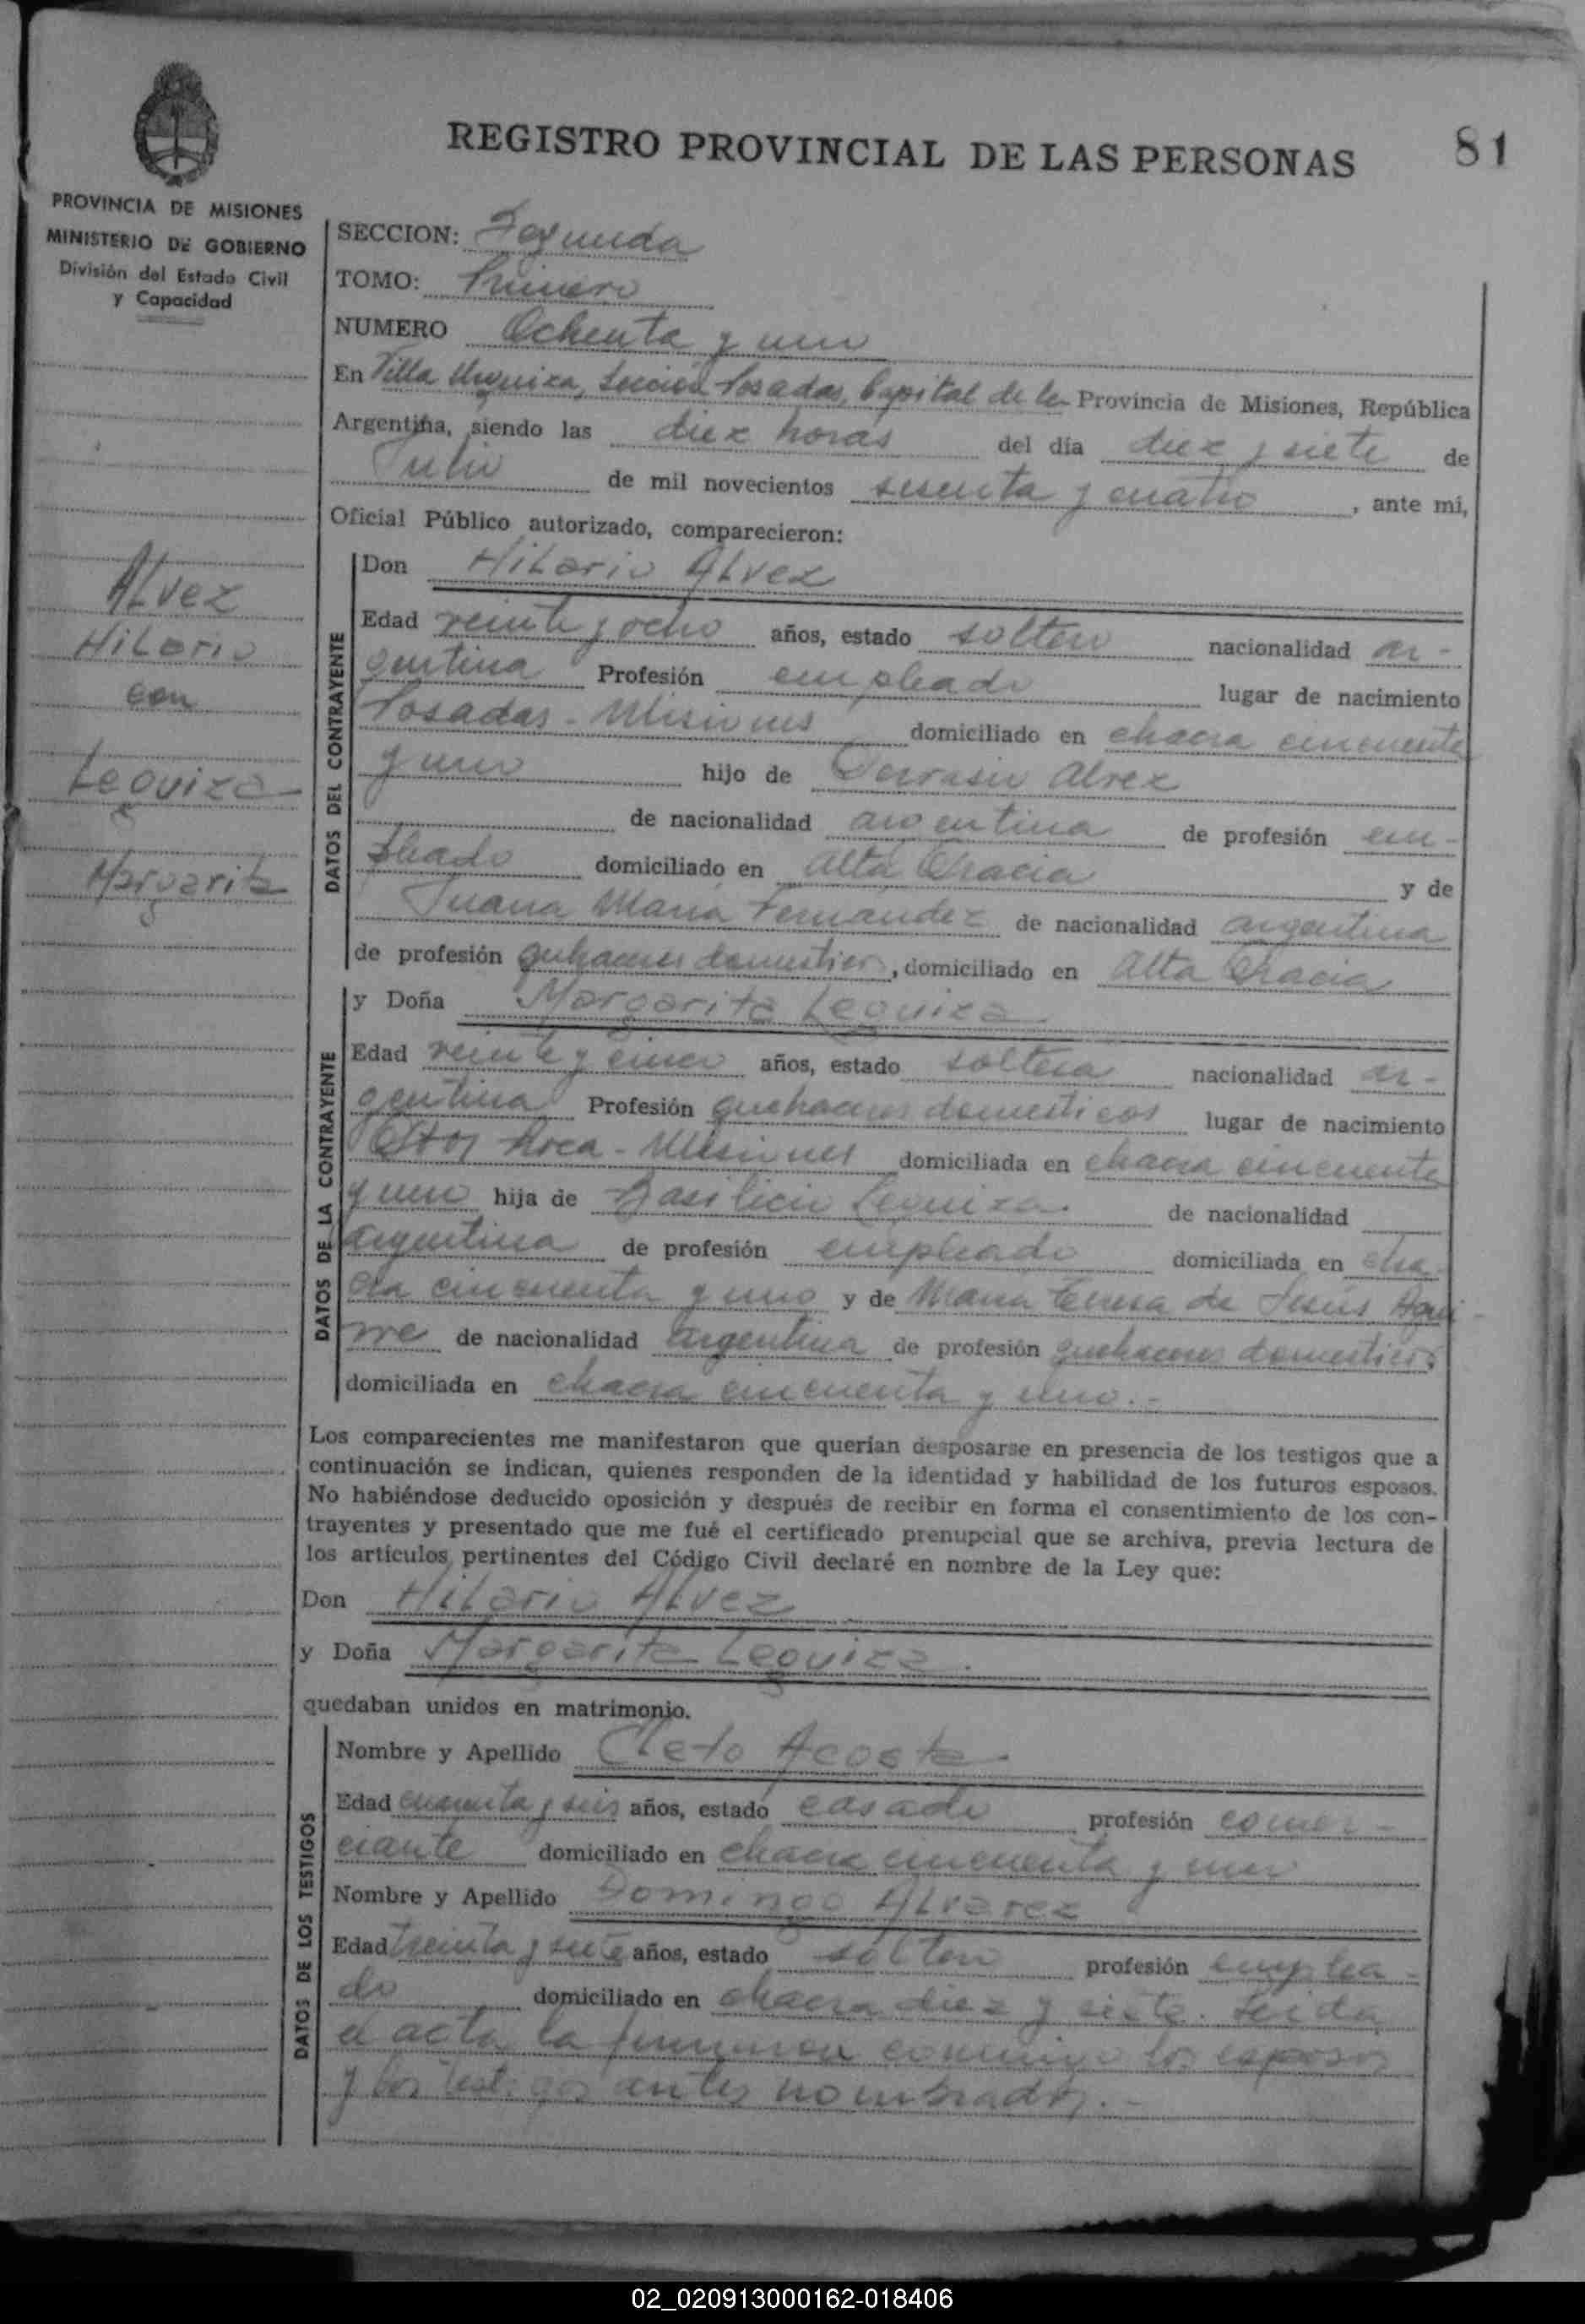 REGISTRO PROVINCIAL DE LAS PERSONAS
81
PROVINCIA DE MISIONES
MINISTERIO DE GOBIERNO
División del Estado Civil
y Capacidad
Alvez
Hilario
con
Leguiza
Margarita
SECCION: Segunda
TOMO: Primero
NUMERO Ochenta y uno
En Villa Urquiza, Sección Posadas, Capital de la Provincia de Misiones, República
Argentina, siendo las diez horas del día diez y siete de
Julio de mil novecientos sesenta y cuatro, ante mi,
Oficial Público autorizado, comparecieron:
DATOS DEL CONTRAYENTE
Don Hilario Alvez
Edad veinte y ocho años, estado soltero nacionalidad ar-
gentina Profesión empleado lugar de nacimiento
Posadas - Misiones domiciliado en chacra cincuenta
y uno hijo de Alvez
de nacionalidad argentina de profesión em-
pleado domiciliado en Alta Gracia y de
Juana María Fernandez de nacionalidad argentina
de profesión quehaceres domesticos, domiciliado en Alta Gracia
DATOS DE LA CONTRAYENTE
y Doña Margarita Leguiza
Edad veinte y cinco años, estado soltera nacionalidad ar-
gentina Profesión quehaceres domesticos lugar de nacimiento
Roca - Misiones domiciliada en chacra cincuenta
y uno hija de Basilicio Leguiza. de nacionalidad
argentina de profesión empleado domiciliada en cha-
cra cincuenta y uno y de María Teresa de Jesús Agui-
rre de nacionalidad argentina de profesión quehaceres domesticos
domiciliada en chacra cincuenta y uno.-
Los comparecientes me manifestaron que querían desposarse en presencia de los testigos que a
continuación se indican, quienes responden de la identidad y habilidad de los futuros esposos.
No habiéndose deducido oposición y después de recibir en forma el consentimiento de los con-
trayentes y presentado que me fué el certificado prenupcial que se archiva, previa lectura de
los artículos pertinentes del Código Civil declaré en nombre de la Ley que:
Don Hilario Alvez
y Doña Margarita Leguiza.
quedaban unidos en matrimonio.
DATOS DE LOS TESTIGOS
Nombre y Apellido Cleto Acosta
Edad cuarenta y seis años, estado casado profesión comer-
ciante domiciliado en chacra cincuenta y uno
Nombre y Apellido Domingo Alvarez
Edad treinta y siete años, estado soltero profesión emplea-
do domiciliado en chacra diez y siete. Leida
el acta la conmigo los esposos
y los testigos antes nombrados.-
02_020913000162-018406